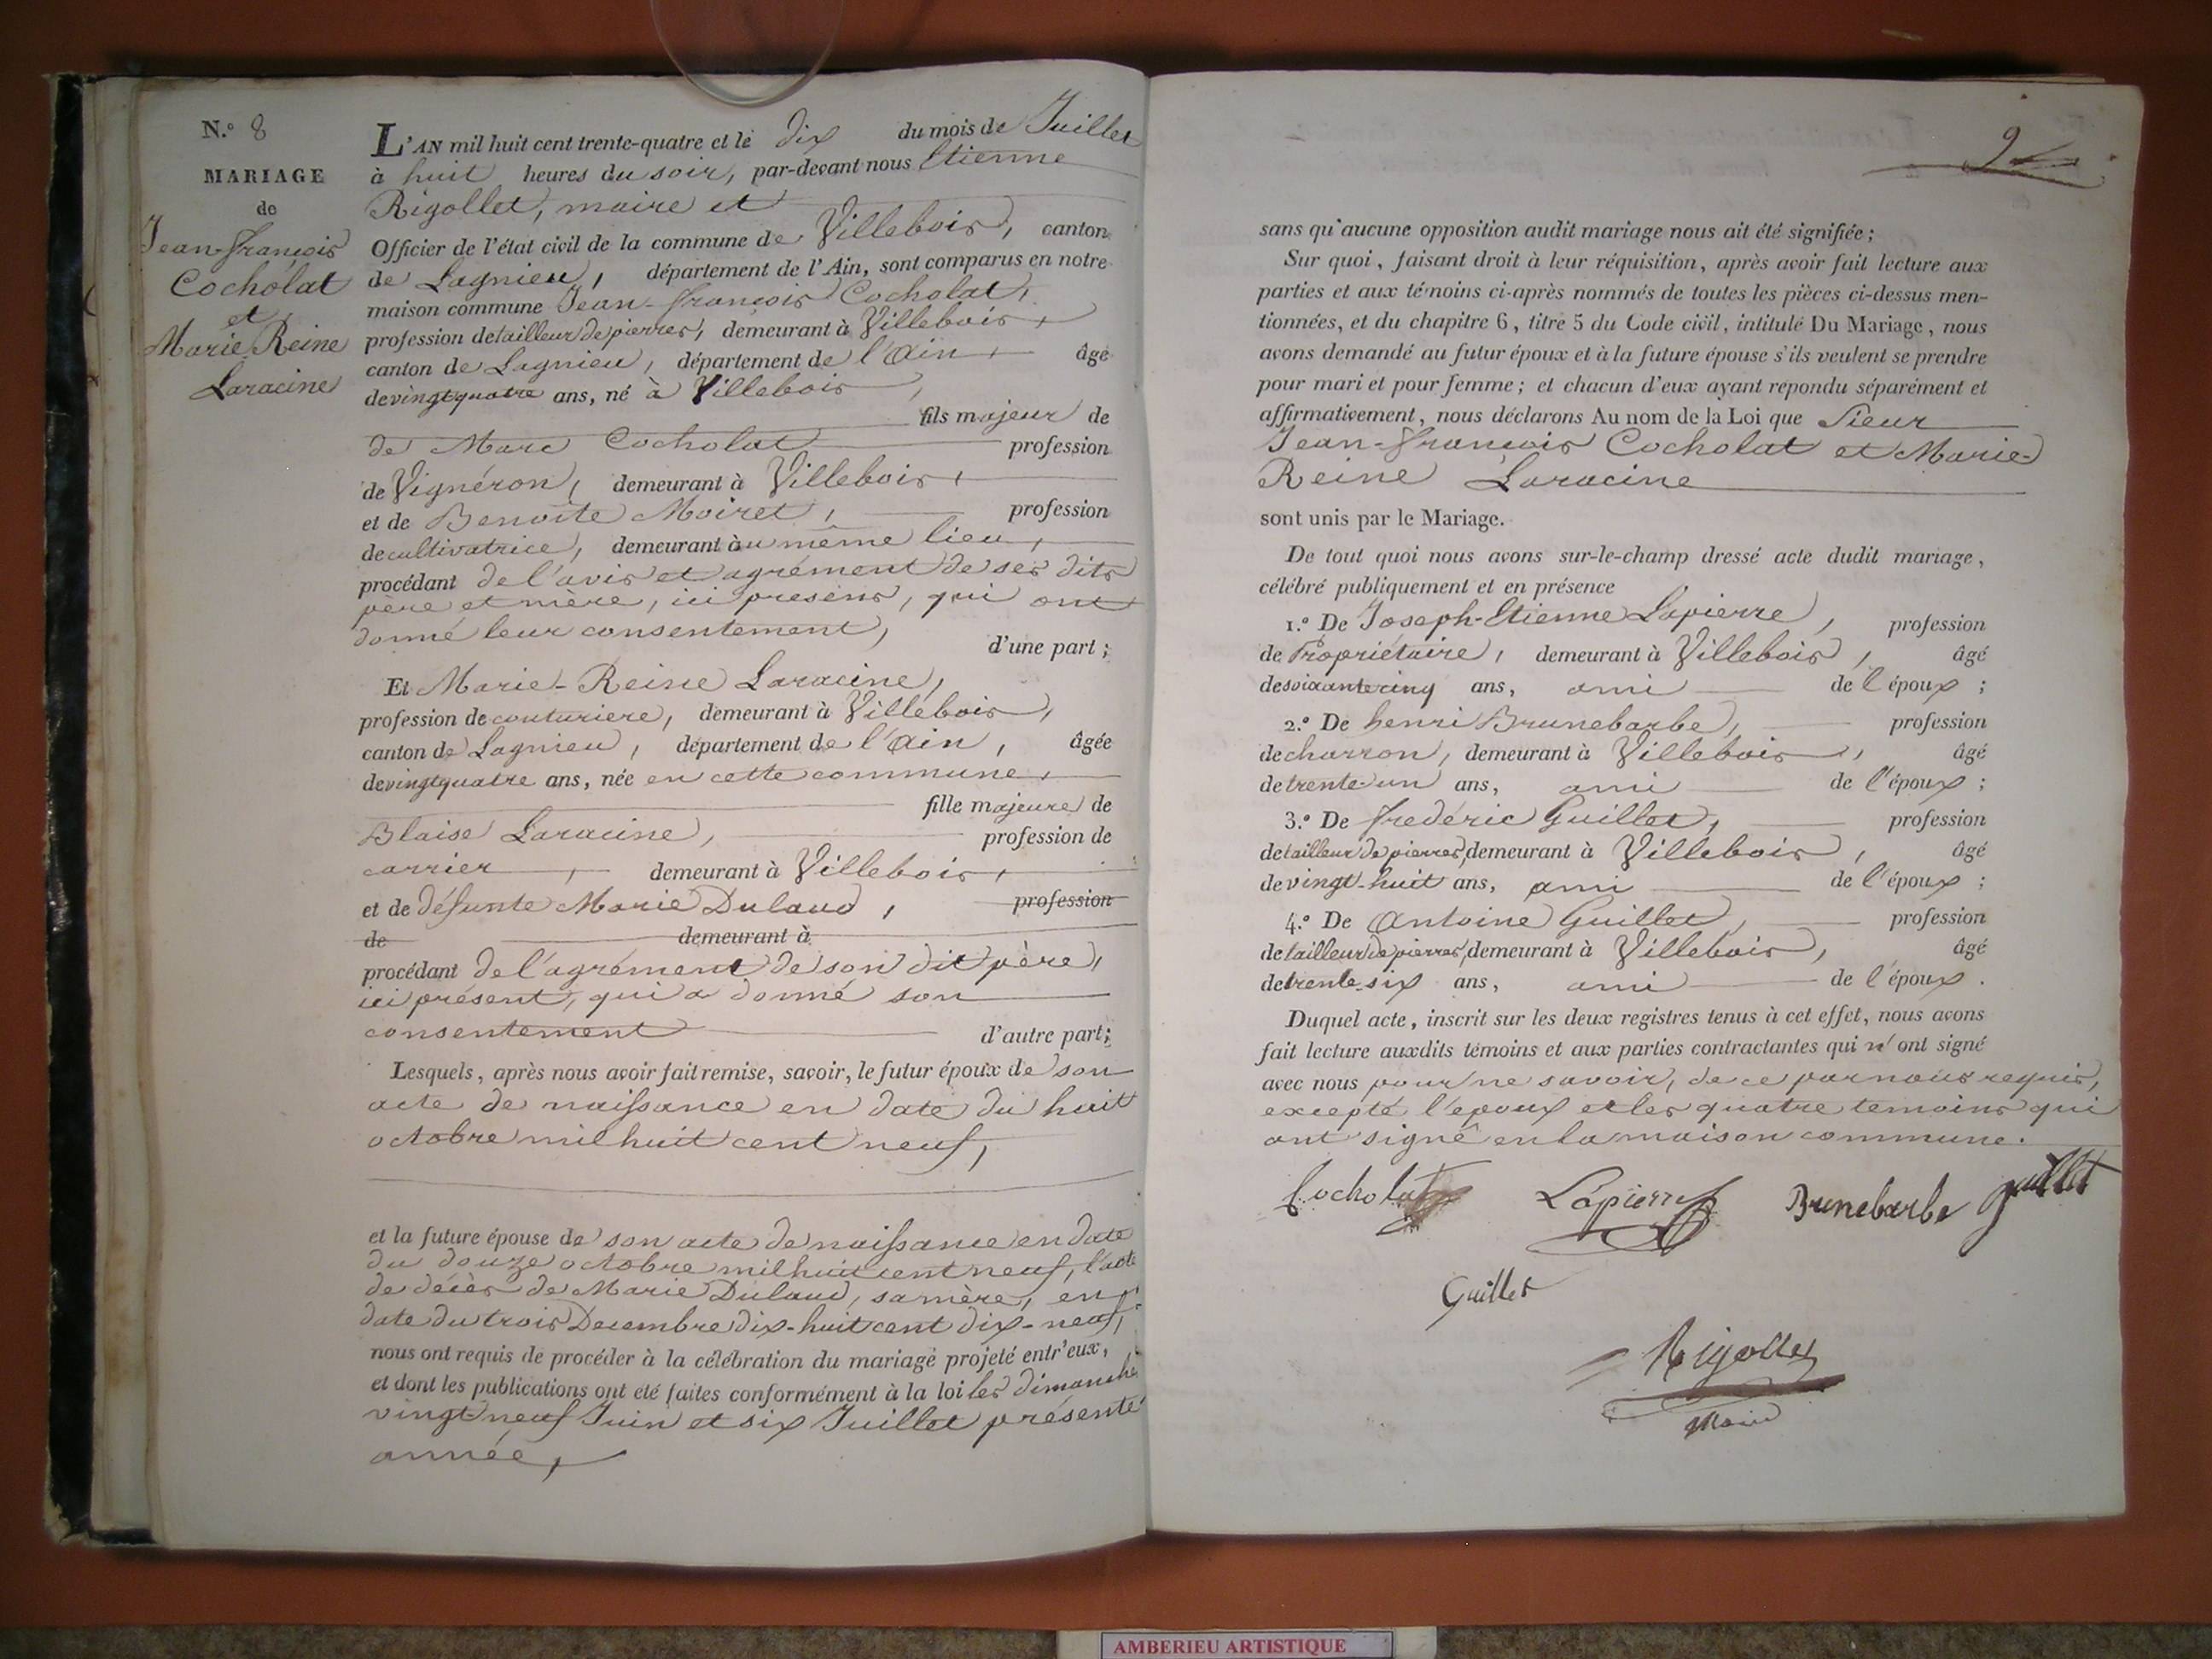 N.º 8
MARIAGE
de
Jean-François
Cocholat
et
Marie Reine
Laracine
L'AN mil huit cent trente-quatre et le dix du mois de Juillet
à huit heures du soir, par-devant nous Etienne
Rigollet, maire et
Officier de l'état civil de la commune de Villebois, canton
de Lagnieu, département de l'Ain, sont comparus en notre
maison commune Jean-François Cocholat,
profession de tailleur de pierres, demeurant à Villebois,
canton de Lagnieu, département de l'Ain, âgé
de vingt quatre ans, né à Villebois,
fils majeur de
de Marc Cocholat profession
de Vignéron, demeurant à Villebois,
et de Benoîte Moiret, profession
de cultivatrice, demeurant àu même lieu,
procédant de l'avis et agrément de ses dits
père et mère, ici présens, qui ont
donné leur consentement,
d'une part ;
Et Marie-Reine Laracine,
profession de couturiere, demeurant à Villebois,
canton de Lagnieu, département de l'Ain, âgée
de vingt quatre ans, née en cette commune,
fille majeure de
Blaise Laracine, profession de
carrier, demeurant à Villebois,
et de défunte Marie Dulaud, profession
de demeurant à
procédant de l'agrément de son dit père,
ici présent, qui a donné son
consentement d'autre part;
Lesquels, après nous avoir fait remise, savoir, le futur époux de son
acte de naissance en date du huit
octobre mil huit cent neuf,
et la future épouse de son acte de naissance en date
du douze octobre mil huit cent neuf, l'acte
de décès de Marie Dulaud, sa mère, en
date du trois Decembre dix-huit cent dix-neuf,
nous ont requis de procéder à la célébration du mariage projeté entr'eux,
et dont les publications ont été faites conformément à la loi les dimanche
vingt neuf Juin et six Juillet présente
année,
9
sans qu'aucune opposition audit mariage nous ait été signifiée ;
Sur quoi, faisant droit à leur réquisition, après avoir fait lecture aux
parties et aux témoins ci-après nommés de toutes les pièces ci-dessus men-
tionnées, et du chapitre 6, titre 5 du Code civil, intitulé Du Mariage, nous
avons demandé au futur époux et à la future épouse s'ils veulent se prendre
pour mari et pour femme ; et chacun d'eux ayant répondu séparément et
affirmativement, nous déclarons Au nom de la Loi que Sieur
Jean-François Cocholat et Marie-
Reine Laracine
sont unis par le Mariage.
De tout quoi nous avons sur-le-champ dressé acte dudit mariage,
célébré publiquement et en présence
1.º De Joseph-Etienne Lapierre, profession
de Propriétaire, demeurant à Villebois, âgé
de soixante cinq ans, ami de l'époux ;
2.º De henri Brunebarbe, profession
de charron, demeurant à Villebois, âgé
de trente-un ans, ami de l'époux ;
3.º De frédéric Guillet, profession
de tailleur de pierres, demeurant à Villebois, âgé
de vingt-huit ans, ami de l'époux ;
4.º De Antoine Guillet, profession
de tailleur de pierres, demeurant à Villebois, âgé
de trente-six ans, ami de l'époux.
Duquel acte, inscrit sur les deux registres tenus à cet effet, nous avons
fait lecture auxdits témoins et aux parties contractantes qui n'ont signé
avec nous pour ne savoir, de ce par nous requis,
excepté l'époux et les quatre temoins qui
ont signé en la maison commune.
Cocholat Lapierre Brunebarbe guillet
Guillet
Rigollet
Maire
AMBERIEU ARTISTIQUE